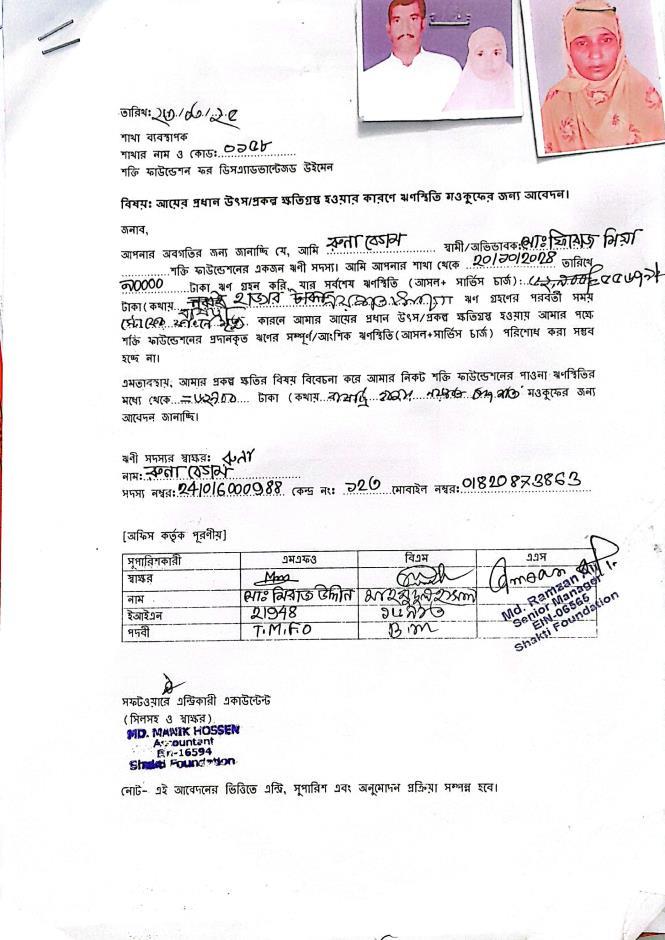 তারিখ:
শাখা ব্যবস্থাপক
শাখার নাম ও কোড: ০১৫৮
শক্তি ফাউন্ডেশন ফর ডিসএ্যাডভান্টেজড উইমেন
বিষয়: আয়ের প্রধান উৎস/প্রকল্প ক্ষতিগ্রস্থ হওয়ার কারণে ঋণস্থিতি মওকুফের জন্য আবেদন।
জনাব,
আপনার অবগতির জন্য জানাচ্ছি যে, আমি রুনা বেগম স্বামী/অভিভাবক: মোঃ ফিরোজ মিয়া
শক্তি ফাউন্ডেশনের একজন ঋণী সদস্য। আমি আপনার শাখা থেকে ২০/১০/২০২৪ তারিখে
৯০০০০ টাকা ঋণ গ্রহন করি, যার সর্বশেষ ঋণস্থিতি (আসল+ সার্ভিস চার্জ):
টাকা (কথায় নব্বই হাজার টাকা ঋণ গ্রহণের পরবর্তী সময়
কারনে আমার আয়ের প্রধান উৎস/প্রকল্প ক্ষতিগ্রস্থ হওয়ায় আমার পক্ষে
শক্তি ফাউন্ডেশনের প্রদানকৃত ঋণের সম্পূর্ণ/আংশিক ঋণস্থিতি(আসল+সার্ভিস চার্জ) পরিশোধ করা সম্ভব
হচ্ছে না।
এমতাবস্থায়, আমার প্রকল্প ক্ষতির বিষয় বিবেচনা করে আমার নিকট শক্তি ফাউন্ডেশনের পাওনা ঋণস্থিতির
মধ্যে থেকে টাকা (কথায় মওকুফের জন্য
আবেদন জানাচ্ছি।
ঋণী সদস্যর স্বাক্ষর: রুনা
নাম: রুনা বেগম
সদস্য নম্বর: 241016000988 কেন্দ্র নং: ১২৩ মোবাইল নম্বর: 01820873863
[অফিস কর্তৃক পূরণীয়]
সুপারিশকারী এমএফও বিএম এএস
স্বাক্ষর
নাম মোঃ মিরাজ উদ্দীন মাহমুদুল হাসান
ইআইএন 21948
পদবী T.M.F.O B.M
Md. Ramzan Ali
Senior Manager
EIN-06565
Shakti Foundation
সফটওয়ারে এন্ট্রিকারী একাউন্টেন্ট
(সিলসহ ও স্বাক্ষর)
MD. MANIK HOSSEN
Accountant
En-16594
Shakti Foundation
নোট- এই আবেদনের ভিত্তিতে এন্ট্রি, সুপারিশ এবং অনুমোদন প্রক্রিয়া সম্পন্ন হবে।